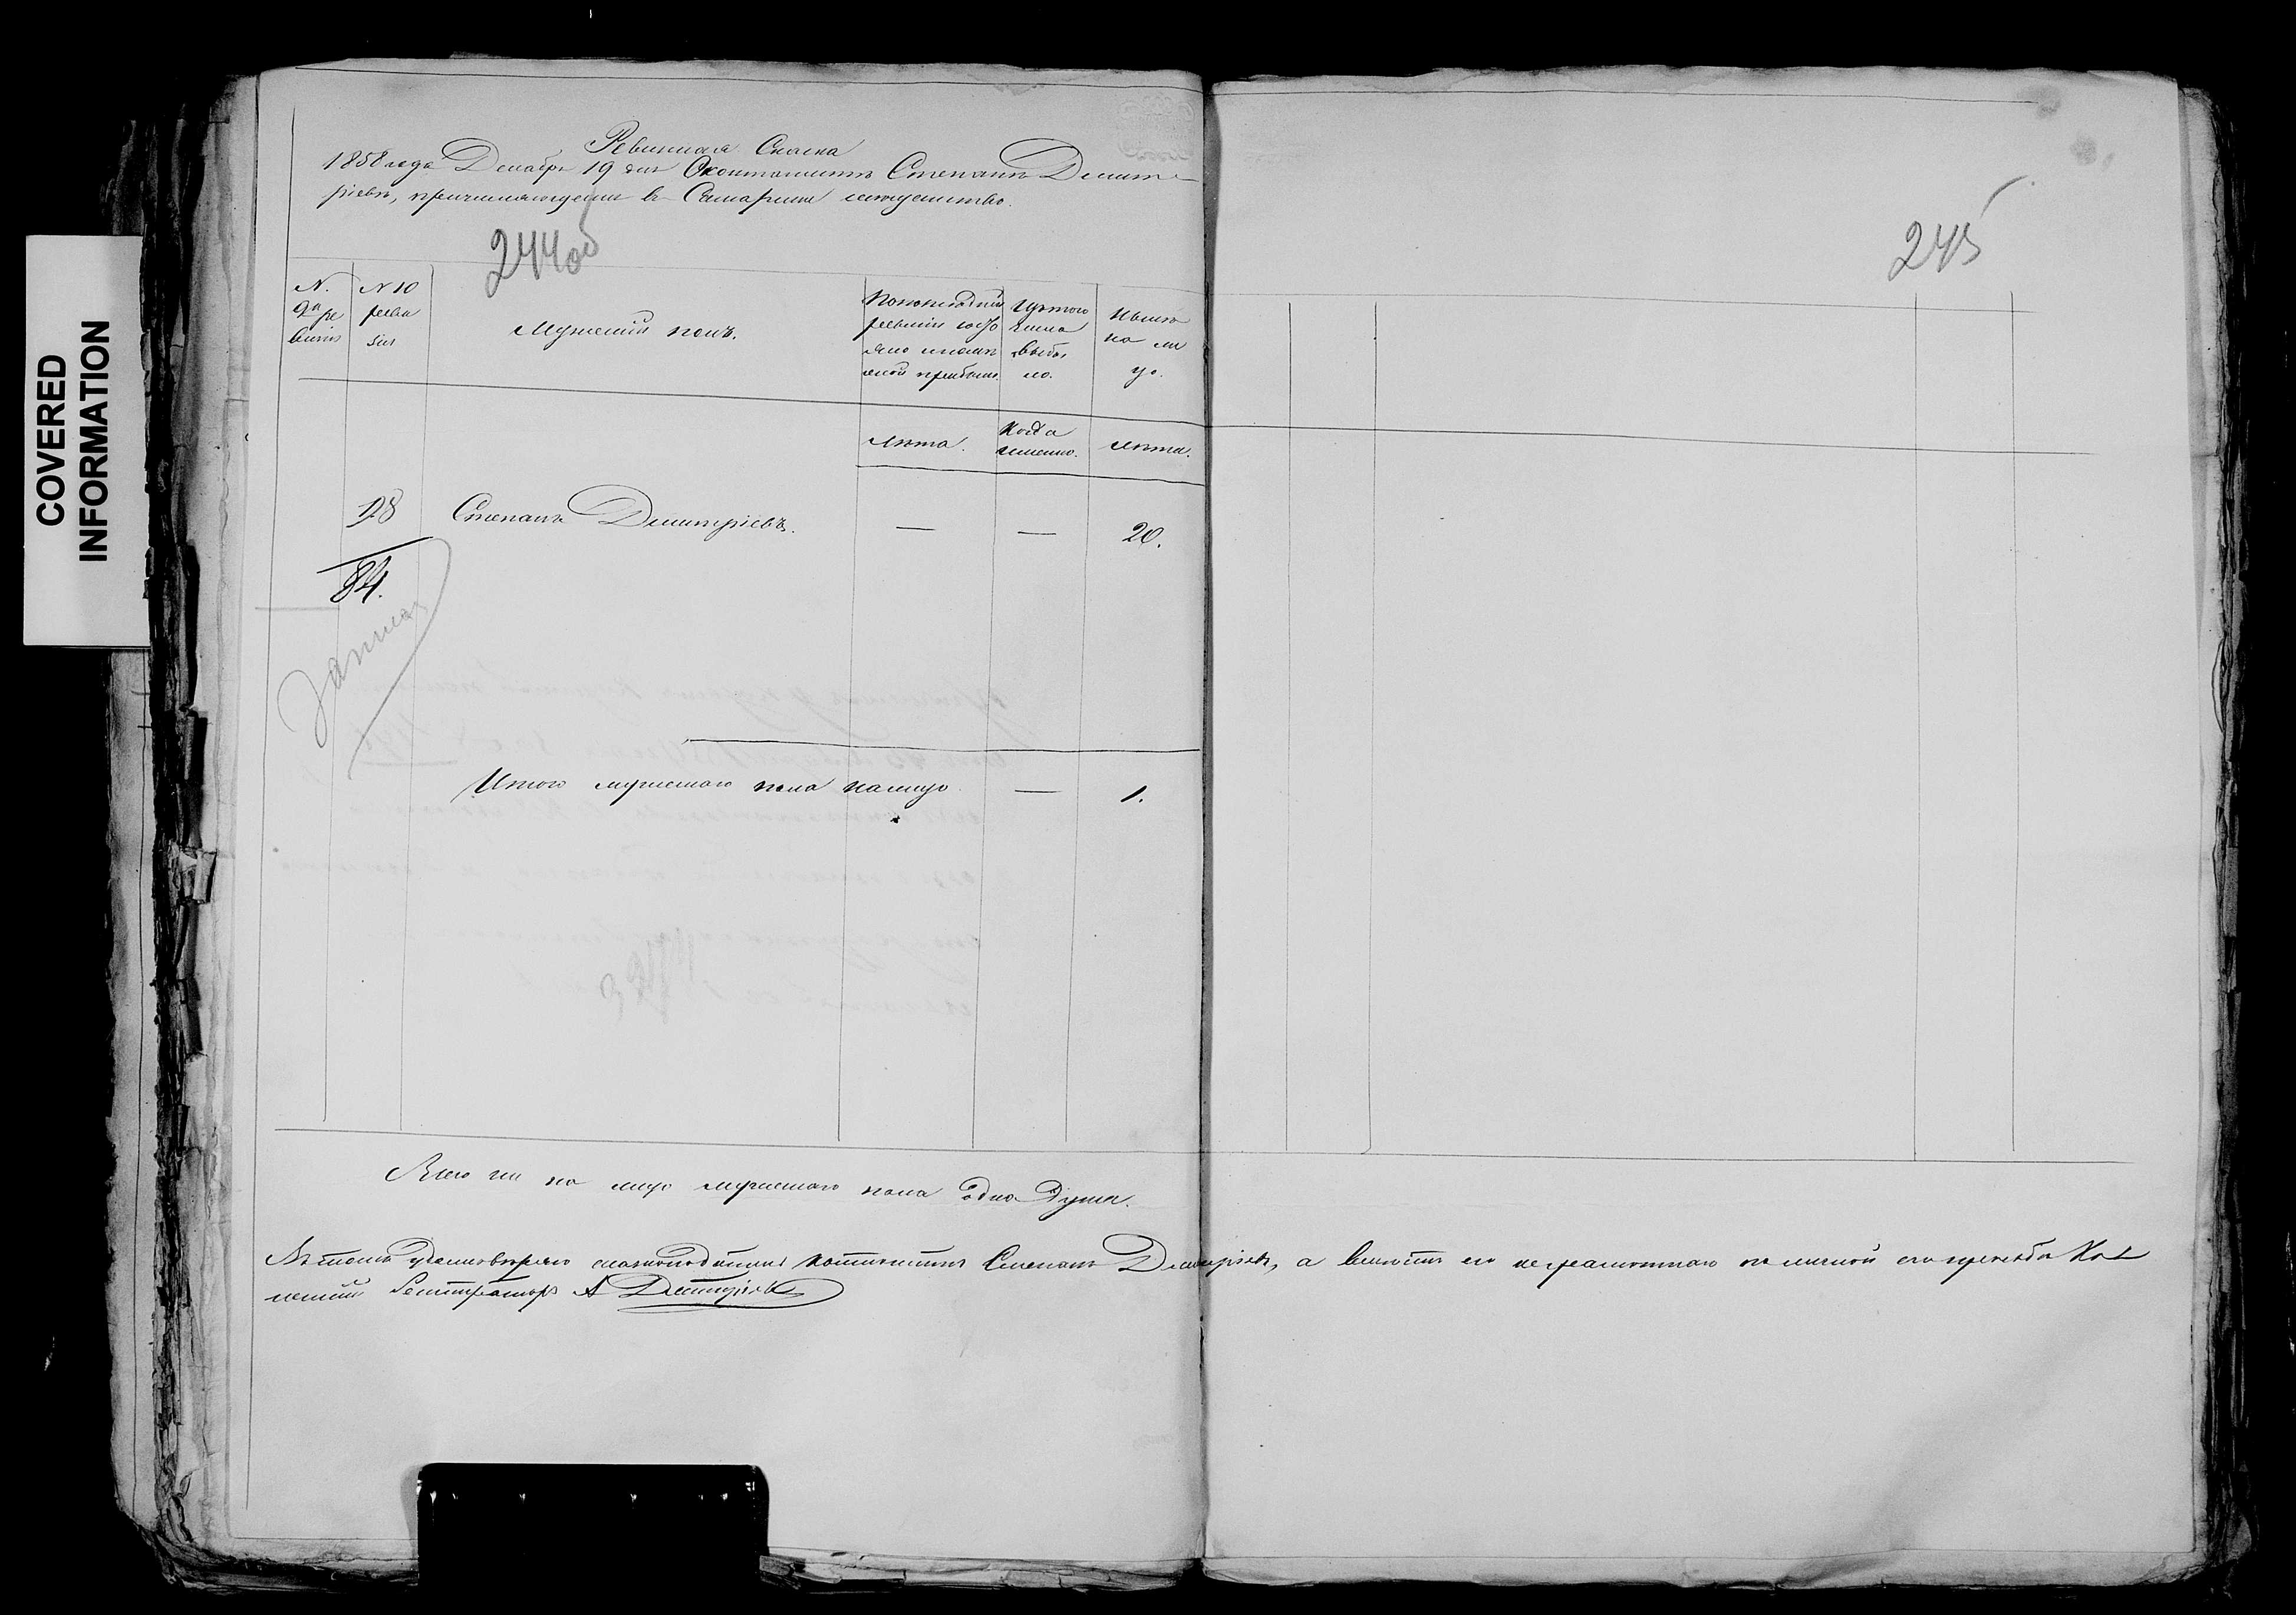 COVERED
INFORMATION
Ревизская Сказка
1858 года Декабря 19 дня Степанъ Димит
ріевъ, причисляющійся въ Самарское
244 об
245
N.
9й ре
визіи
N 10
реви
зіи
Мужескій полъ.
По последней
ревизіи состо
яло и после
оной прибыло.
Изъ того
числа
выбы
ло.
Нынѣ
на ли
цо.
Лѣта.
Когда
именно.
Лѣта.
128 Степанъ Димитріевъ. — — 20.
84.
Итого мужескаго пола налицо — 1.
Всего на лицо мужескаго пола одна душа.
Степанъ Димитріевъ, а вместо его неграмотнаго по личной его прозьбѣ Кол
лежскій Регистраторъ А Дмитріевъ